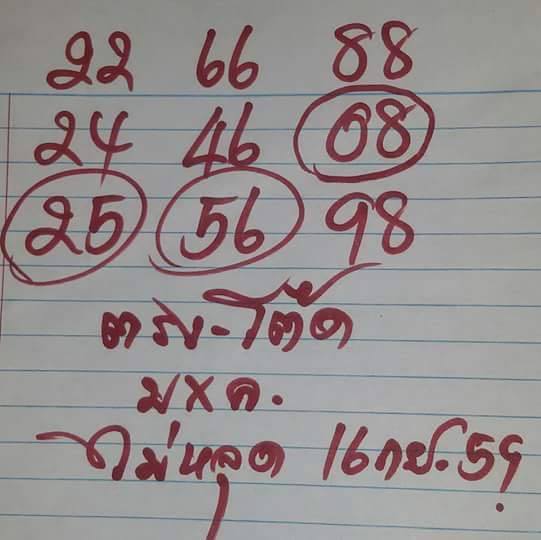 22 66 88
24 46 08
25 56 98
ตรง-โต๊ด
ม x ล.
ไม่หลุด 16 กย. 59